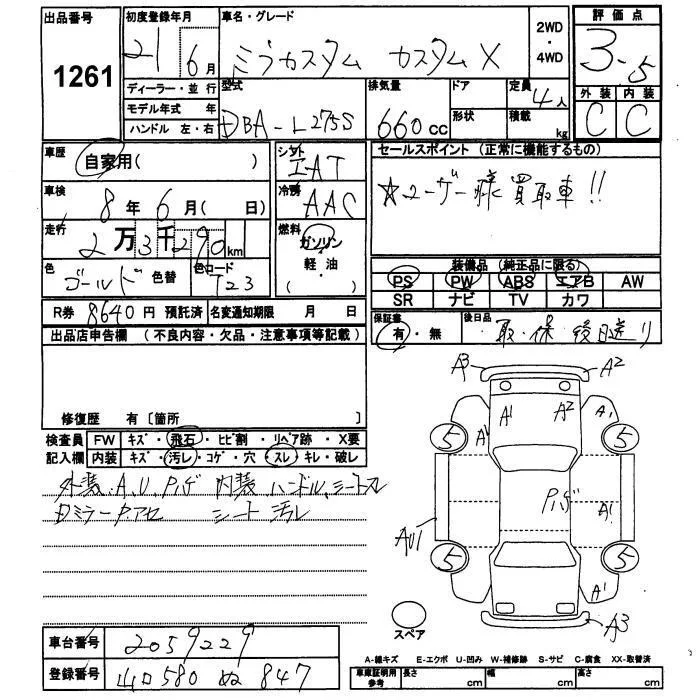 出品番号 初度登録年月 車名・グレード 2WD・4WD 評価点
1261 21年6月 ミラカスタム カスタムX 3.5
ディーラー・並行 型式 排気量 ドア 定員 外装 内装
モデル年式 年 DBA-L275S 660cc 形状 積載 4人 kg C C
ハンドル 左・右
車歴 自家用( ) シフト IAT セールスポイント (正常に機能するもの)
車検 8年6月( 日) 冷房 AAC ☆ユーザー様買取車!!
走行 2万3千290km 燃料 ガソリン・軽油・( )
色 ゴールド 色替 色コード T23 装備品 (純正品に限る)
PS PW ABS エアB AW
SR ナビ TV カワ
R券 8640円 預託済 名変通知期限 月 日 保証書 有・無 後日品 取・保 後日送り
出品店申告欄 (不良内容・欠品・注意事項等記載)
修復歴 有〔箇所 〕
検査員 FW キズ・飛石・ヒビ割・リペア跡・X要
記入欄 内装 キズ・汚レ・コゲ・穴・スレ・キレ・破レ
外装、A,U,Pハゲ 内装 ハンドル、シートスレ
シート汚レ
A3 A2
A1 A2 A1
A1
5 5
Pハゲ A1
AU1
5 5
A1
A3
スペア
車台番号 2059229
登録番号 山口580 ぬ 847
A-線キズ E-エクボ U-凹み W-補修跡 S-サビ C-腐食 XX-取替済
車庫証明用参考 長さ cm 幅 cm 高さ cm